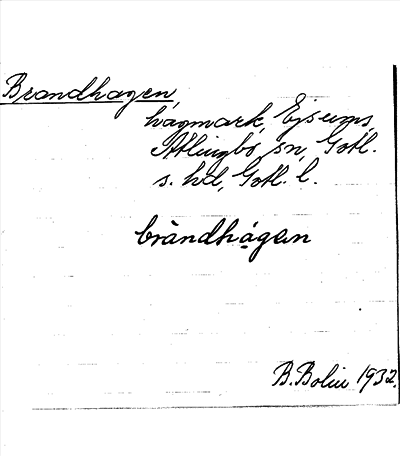 Brandhagen,
hagmark, Ejsums,
Atlingbo sn, Gotl.
s. hd, Gotl. l.
bràndhá̱gen
B. Bolin 1932.